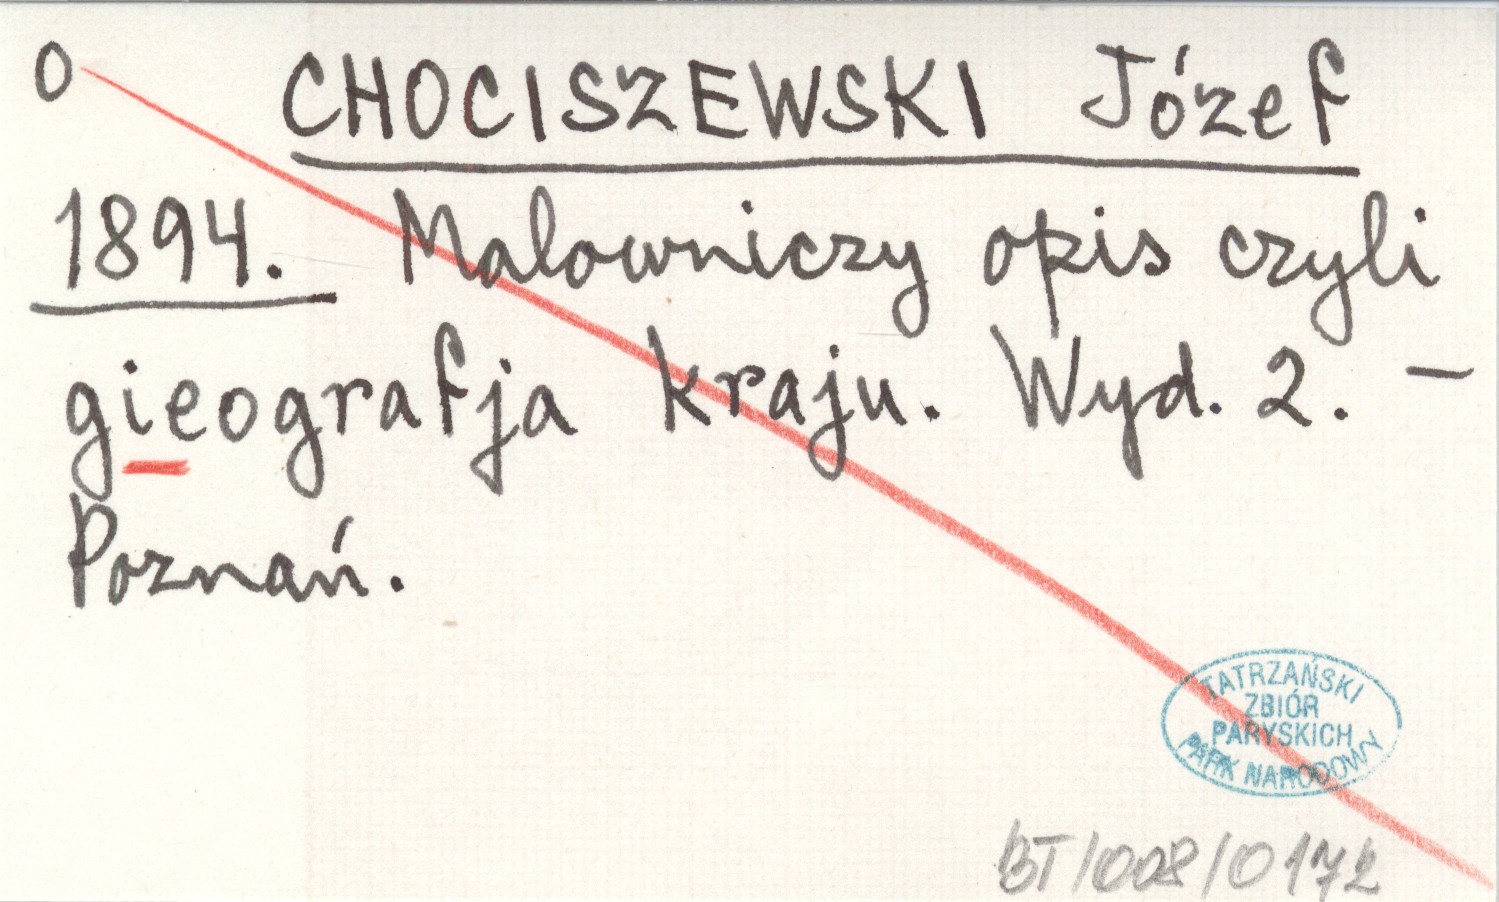 O CHOCISZEWSKI Józef
1894. Malowniczy opis czyli
gieografja kraju. Wyd. 2. –
Poznań.
TATRZAŃSKI
ZBIÓR
PARYSKICH
PARK NARODOWY
BT/008/0172